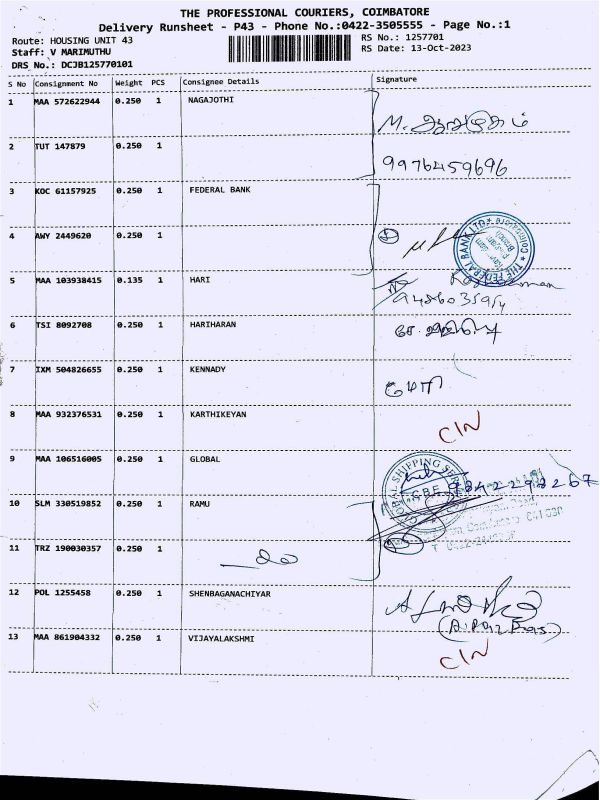 THE PROFESSIONAL COURIERS, COIMBATORE
Delivery Runsheet - P43 - Phone No.:0422-3505555 - Page No.:1
Route: HOUSING UNIT 43 RS No.: 1257701
Staff: V MARIMUTHU RS Date: 13-Oct-2023
DRS No.: DCJB125770101
S No Consignment No Weight PCS Consignee Details Signature
1 MAA 572622944 0.250 1 NAGAJOTHI
M. ஆறுமுகம்
2 TUT 147879 0.250 1 9976459696
3 KOC 61157925 0.250 1 FEDERAL BANK
4 AWY 2449620 0.250 1
THE FEDERAL BANK LTD
5 MAA 103938415 0.135 1 HARI
6 TSI 8092708 0.250 1 HARIHARAN
7 IXM 504826655 0.250 1 KENNADY
8 MAA 932376531 0.250 1 KARTHIKEYAN C/N
9 MAA 106516005 0.250 1 GLOBAL
10 SLM 330519852 0.250 1 RAMU
11 TRZ 190030357 0.250 1
12 POL 1255458 0.250 1 SHENBAGANACHIYAR
13 MAA 861904332 0.250 1 VIJAYALAKSHMI C/N